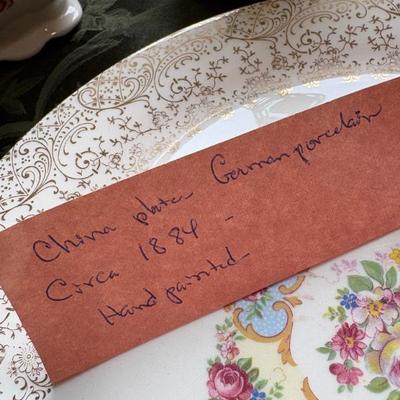 China plate - German porcelain
Circa 1884 -
Hand painted -